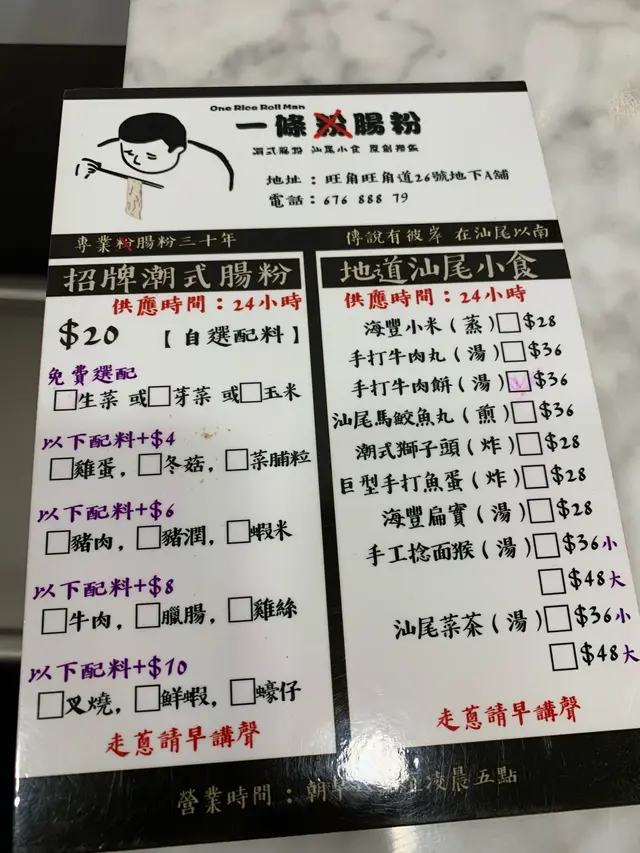 One Rice Roll Man
一條腸粉
潮式腸粉 汕尾小食
地址：旺角旺角道26號地下A舖
電話：676 888 79
專業粉腸粉三十年
傳說有彼岸 在汕尾以南
招牌潮式腸粉
供應時間：24小時
$20 【自選配料】
免費選配
生菜 或 芽菜 或 玉米
以下配料+$4
雞蛋， 冬菇， 菜脯粒
以下配料+$6
豬肉， 豬潤， 蝦米
以下配料+$8
牛肉， 臘腸， 雞絲
以下配料+$10
叉燒， 鮮蝦， 蠔仔
走蔥請早講聲
地道汕尾小食
供應時間：24小時
海豐小米（蒸） $28
手打牛肉丸（湯） $36
手打牛肉餅（湯） $36
汕尾馬鮫魚丸（煎） $36
潮式獅子頭（炸） $28
巨型手打魚蛋（炸） $28
海豐扁實（湯） $28
手工捻面猴（湯） $36小
$48大
汕尾菜茶（湯） $36小
$48大
走蔥請早講聲
營業時間：朝 凌晨五點